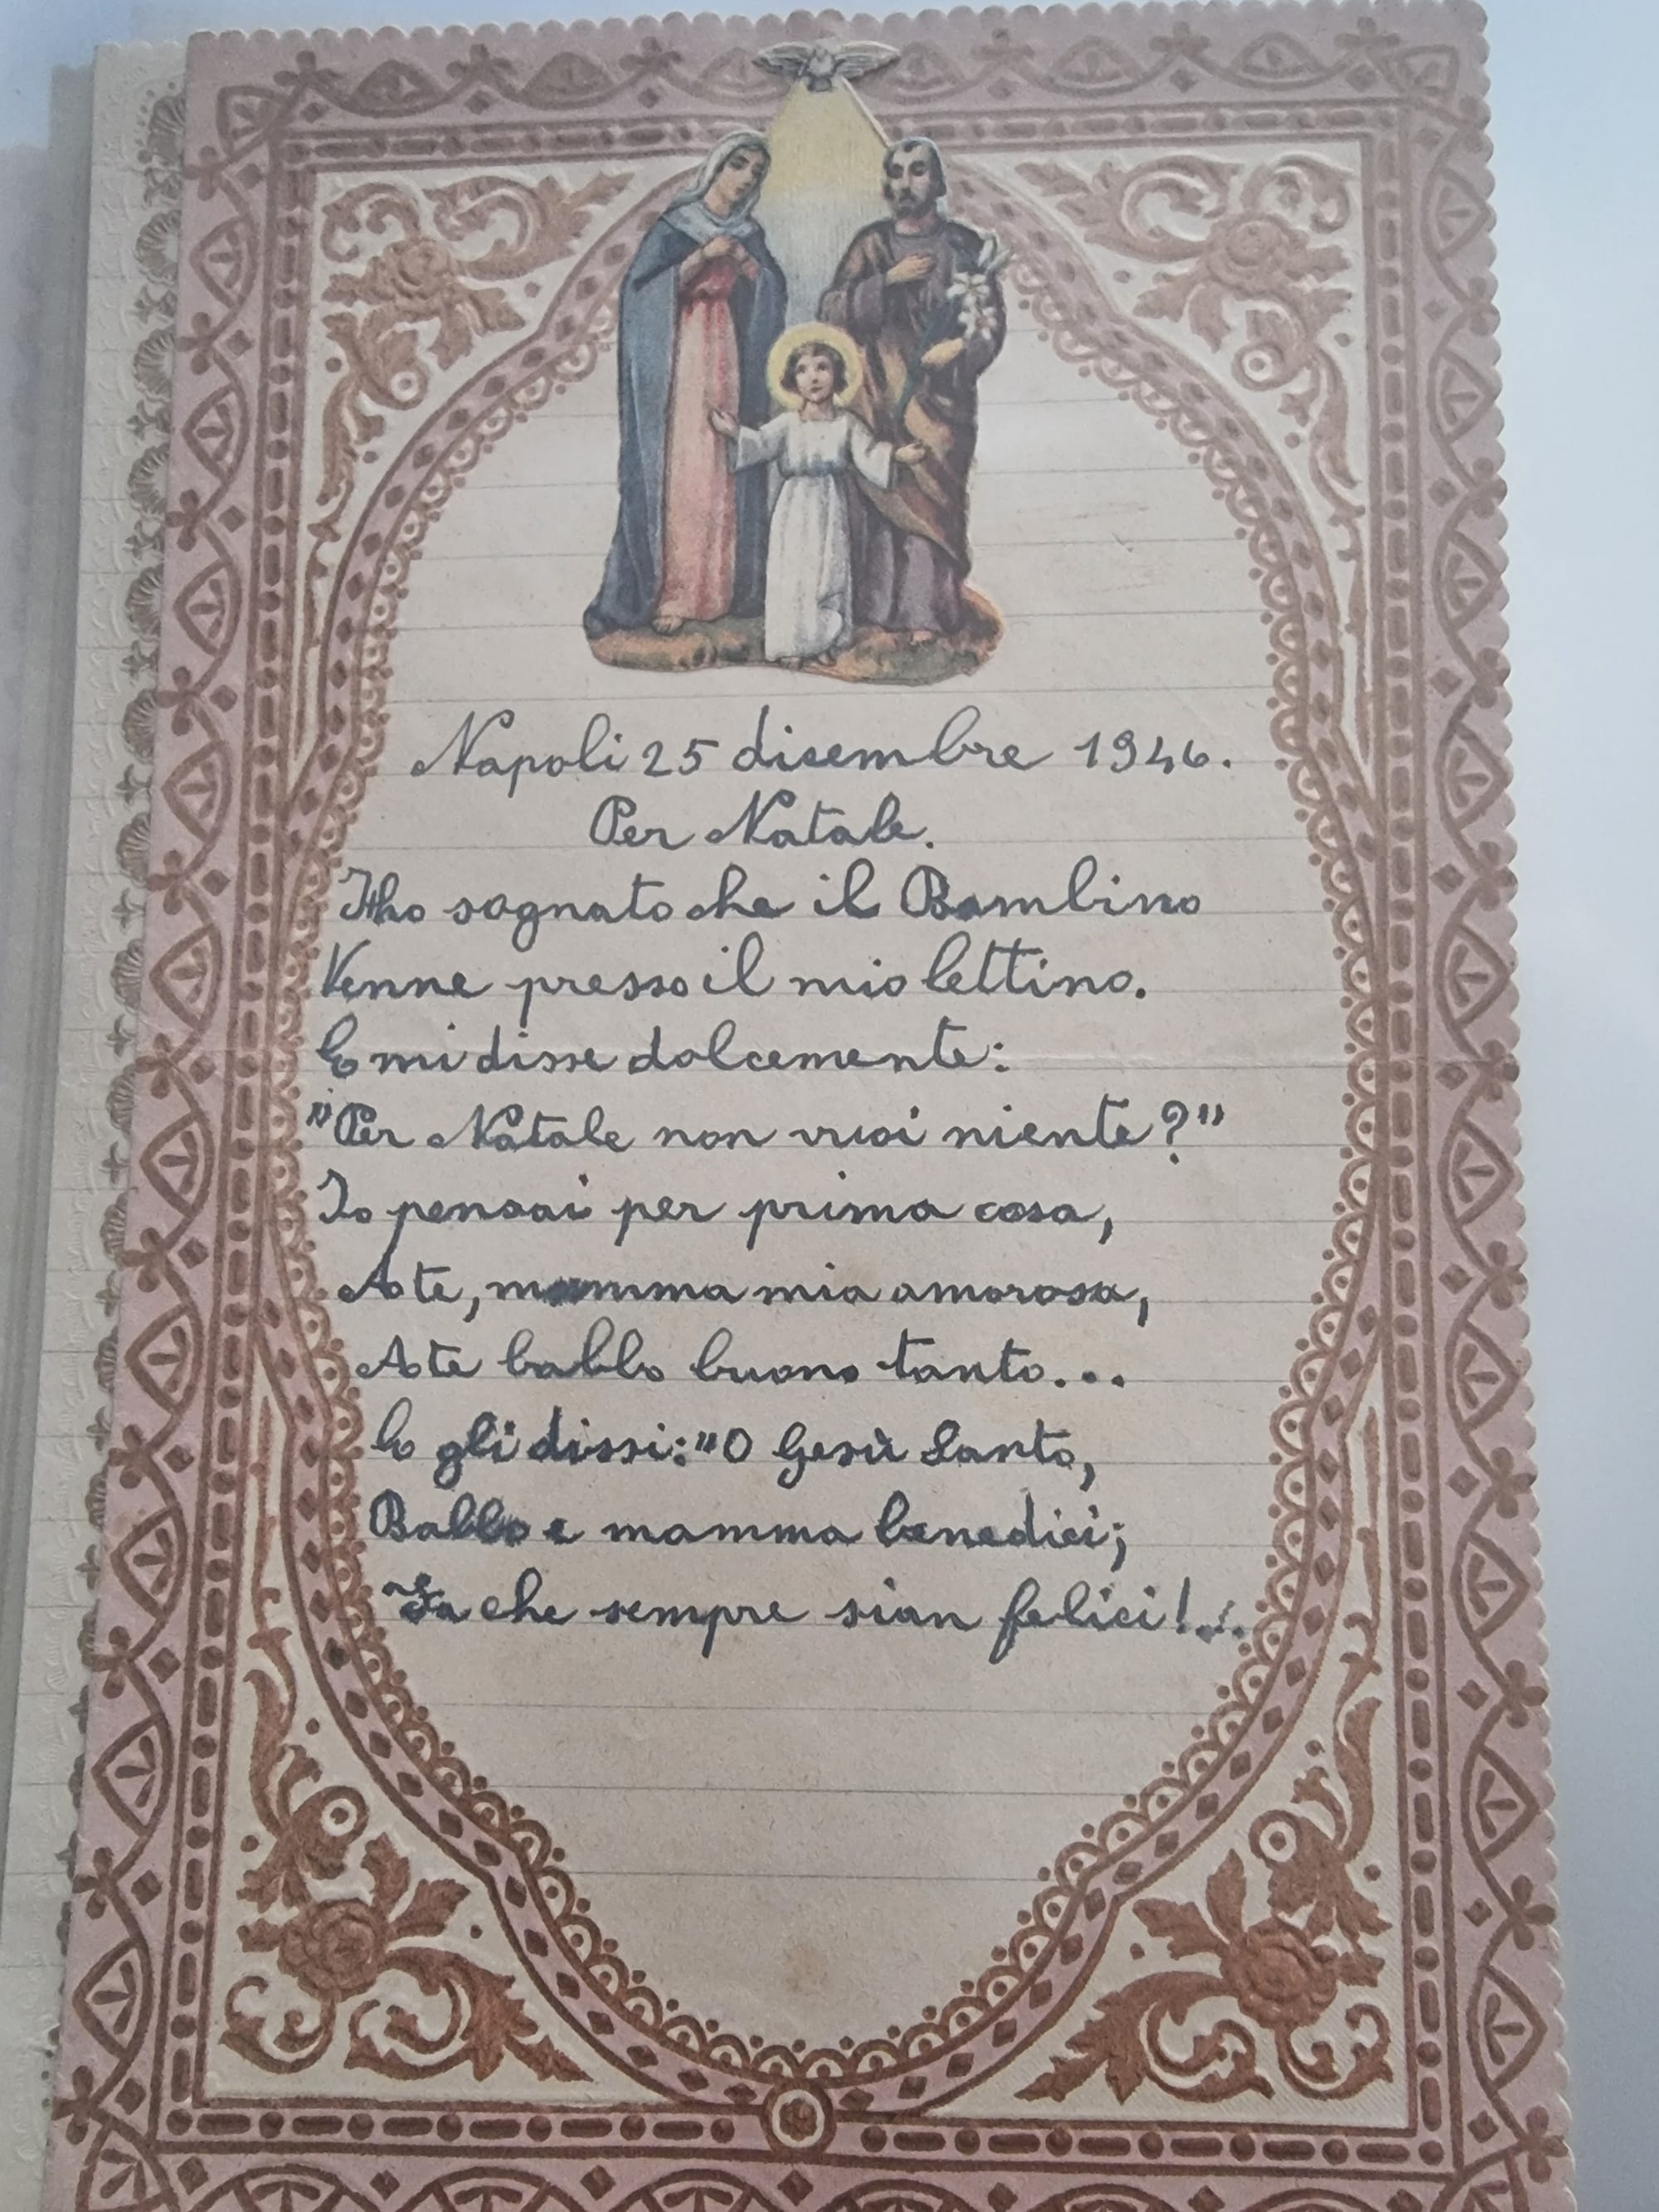 Napoli 25 dicembre 1946.
Per Natale.
Ho sognato che il Bambino
Venne presso il mio lettino.
E mi disse dolcemente:
"Per Natale non vuoi niente?"
Io pensai per prima cosa,
A te, mamma mia amorosa,
A te babbo buono tanto...
E gli dissi: "O Gesù Santo,
Babbo e mamma benedici;
"Fa che sempre sian felici!...